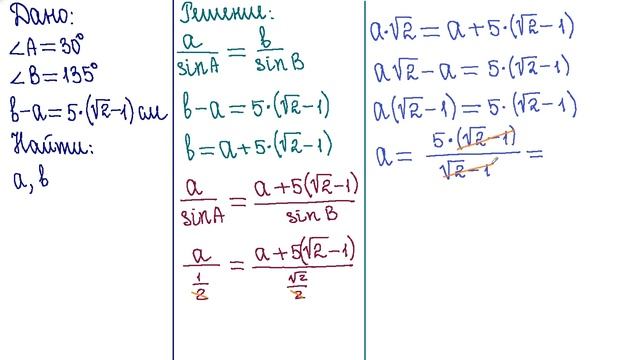 Дано:
∠A=30°
∠B=135°
b-a=5·(√2-1) см
Найти:
a, b
Решение:
a/sinA = b/sinB
b-a=5·(√2-1)
b=a+5·(√2-1)
a/sinA = a+5(√2-1)/sinB
a/(1/2) = a+5(√2-1)/(√2/2)
a·√2 = a+5·(√2-1)
a√2-a=5·(√2-1)
a(√2-1)=5·(√2-1)
a= 5·(√2-1)/√2-1 =